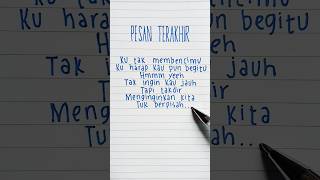 PESAN TERAKHIR
Ku tak membencimu
Ku harap kau pun begitu
Hmmm yeeh
Tak ingin kau jauh
Tapi takdir
Menginginkan kita
Tuk berpisah...